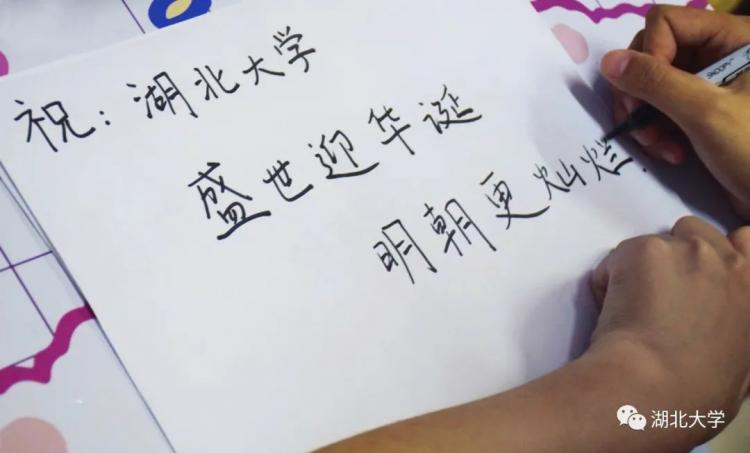 祝：湖北大学
盛世迎华诞
明朝更灿烂！
SNOOPY
湖北大学